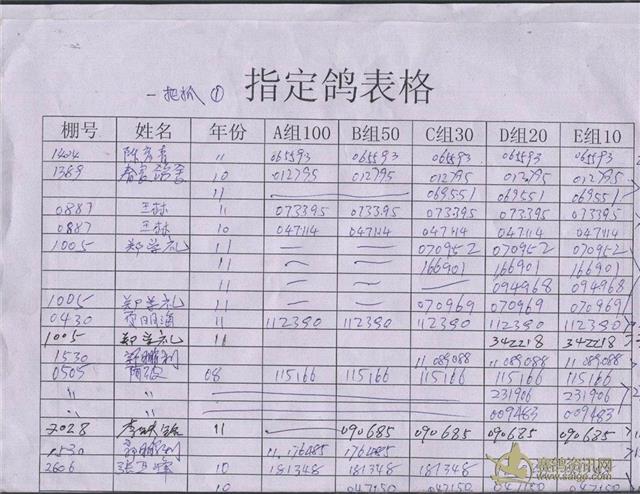 一把抓 ① 指定鸽表格
棚号 姓名 年份 A组100 B组50 C组30 D组20 E组10
1404 陈 11 065593 065593 065593 065593 065593
1389 鸽舍 10 012795 012795 012795 012795 012795
11 — 069551 069551 069551
0887 王林 11 073395 073395 073395 073395 073395
0887 王林 10 047114 047114 047114 047114 047114
1005 郑学礼 11 — — 070952 070952 070952
11 — — 166901 166901 166901
11 — — 094968 094968
1005 郑学礼 11 — — 070969 070969 070969
0430 11 112390 112390 112390 112390 112390
1005 郑学礼 11 342218 342218
1530 11 089088 089088 089088
0505 08 115166 115166 115166 115166 115166
〃 〃 231906 231906
〃 〃 009483 009483
2028 李 11 090685 090685 090685 090685
1530 11, 176485 176485
2606 张 10 181348 181348 181348 181348 181348
10 047150 047150 047150 047150
赛鸽资讯网
www.saige.com